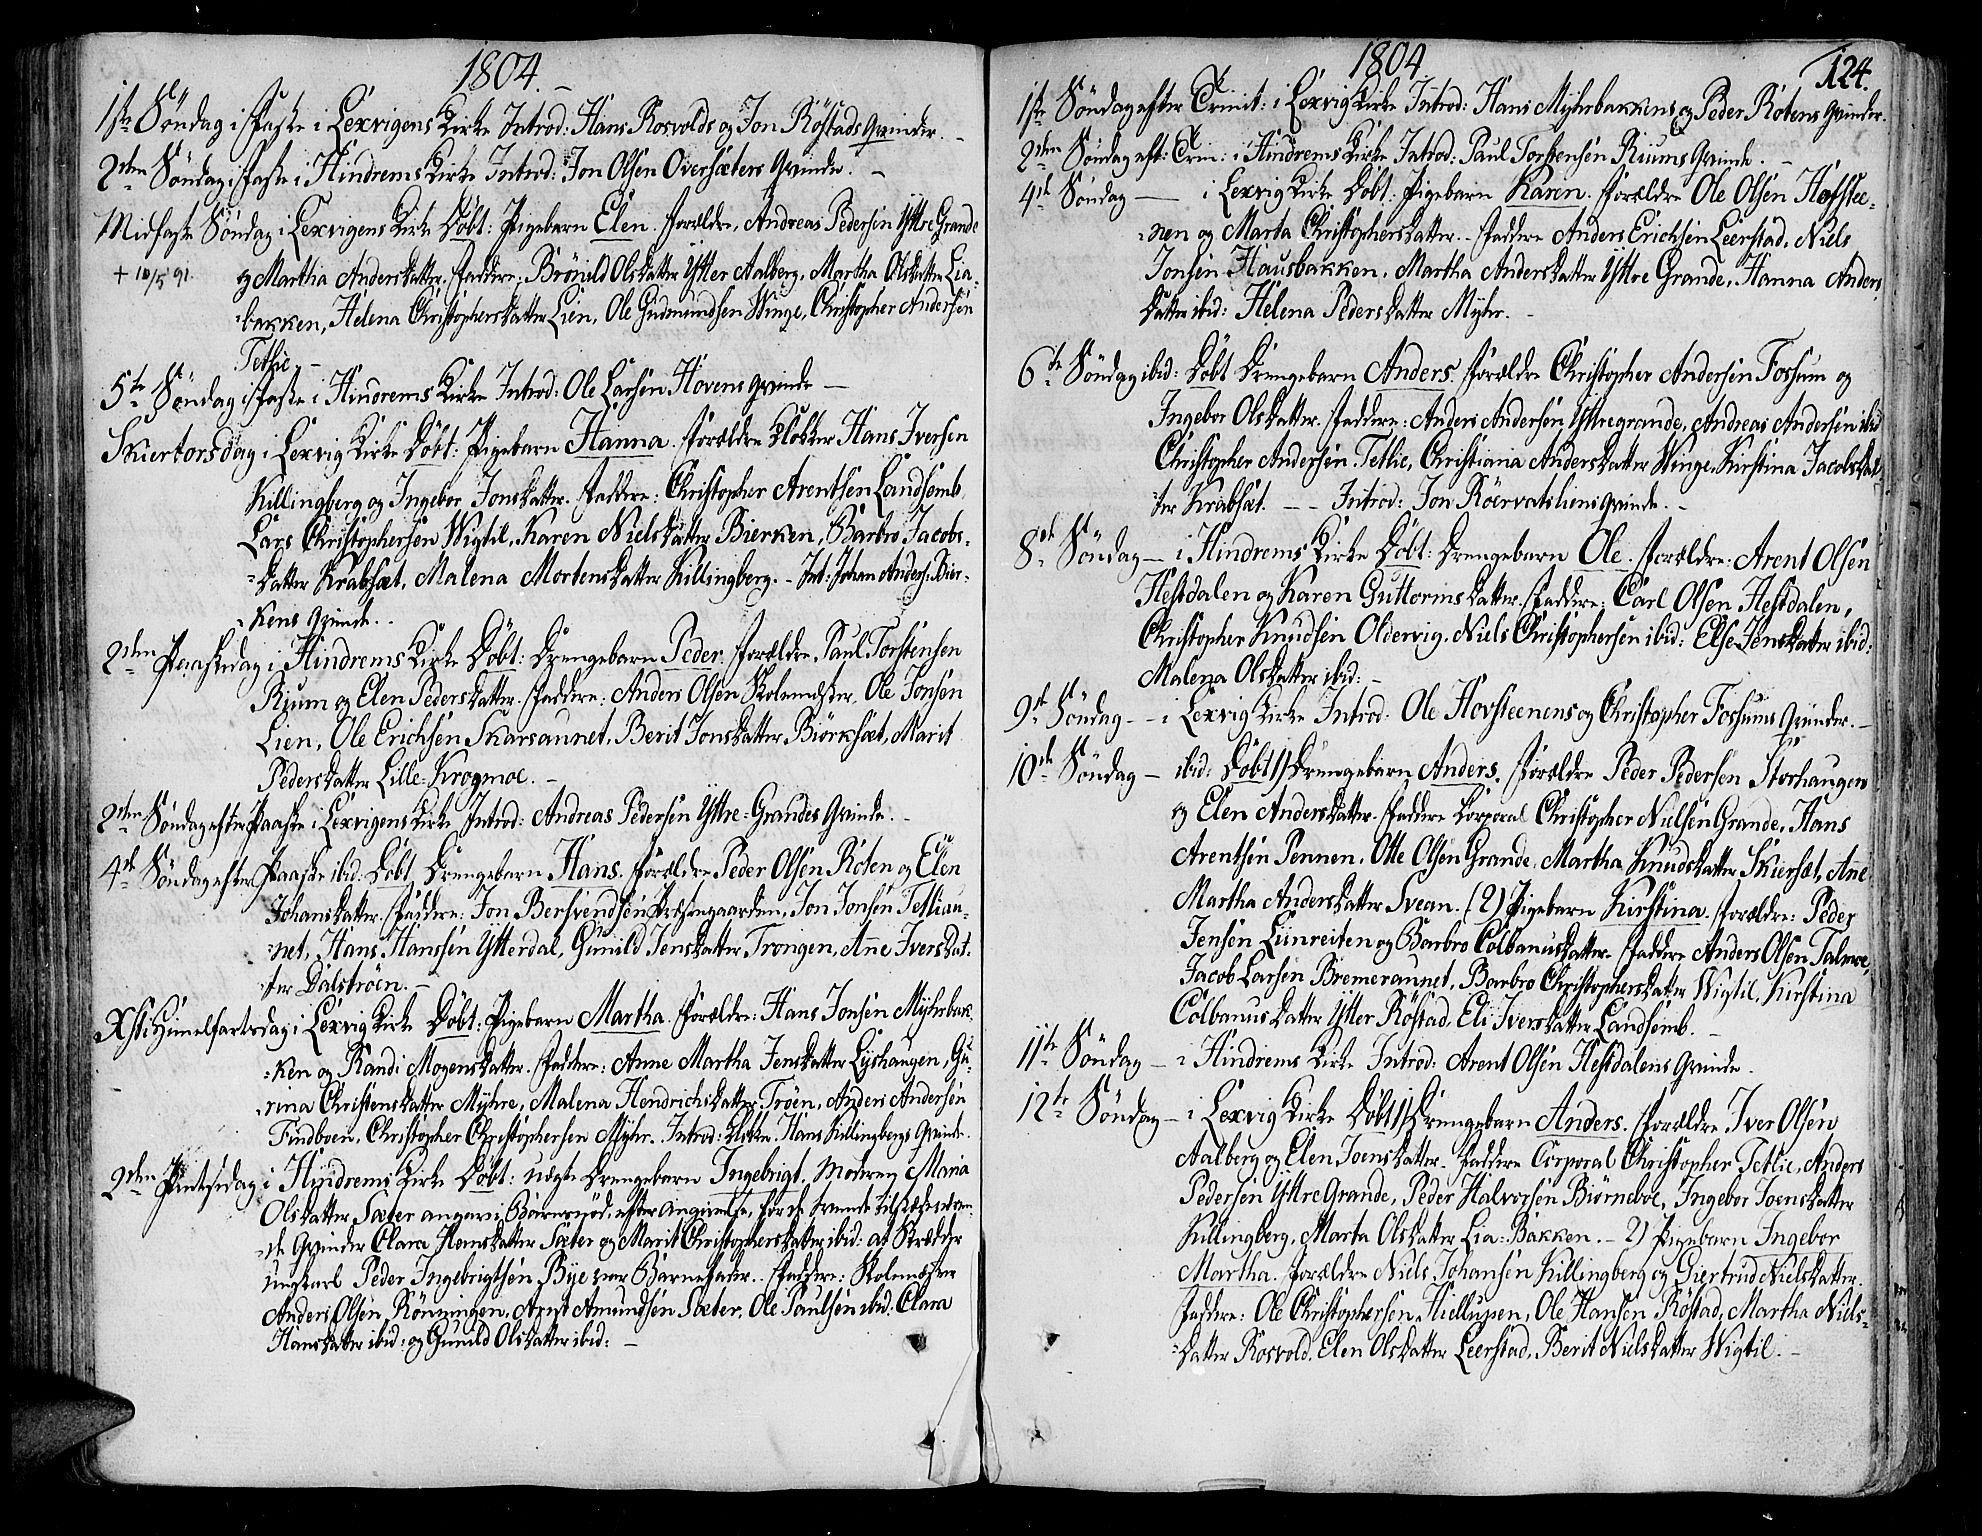 1804.
1ste Söndag i Faste i Lexvigens Kirke Introd: Hans Rosvolds og Jon Röstads Qvinder. –
2den Söndag i Faste i Hindrems Kirke Introd: Jon Olsen Oversæters Qvinde. –
Midfaste Söndag i Lexvigens Kirke Döbt: Pigebarn Elen. Forældre, Andreas Pedersen Yttre Grande
+ 10/5 91. og Martha Andersdatter. Faddere: Brönild Olsdatter Ytter Aalberg, Martha Olsdatter Lia-
bakken, Helena Christophersdatter Lien, Ole Gudmundsen Winge, Christopher Andersen
Tetlie. –
5te Söndag i Faste i Hindrems Kirke Introd: Ole Larsen Hovens Qvinde –
Skiertorsdag i Lexvig Kirke Döbt: Pigebarn Hanna. Forældre Klokker Hans Iversen
Killingberg og Ingebor Jonsdatter. Faddere: Christopher Arentsen Landsemb
Lars Christophersen Wigtil, Karen Nielsdatter Bierken, Barbro Jacobs-
datter Krabsæt, Malena Mortensdatter Killingberg. – Int: Johan Anders: Bier-
kens Qvinde. .
2den Paaskedag i Hindrems Kirke Döbt: Drengebarn Peder. Forældre, Paul Torstensen
Rium og Elen Pedersdatter. Faddere: Anders Olsen Skolemester, Ole Jonsen
Lien, Ole Erichsen Skarsaunet, Berit Jonsdatter Biörksæt, Marit
Pedersdatter Lille-Krogmoe. –
2den Söndag efter Paaske i Lexvigens Kirke Introd: Andreas Pedersen Yttre-Grandes Qvinde. –
4de Söndag efter Paaske ibid: Döbt Drengebarn Hans. Forældre Peder Olsen Röten og Elen
Johansdatter. Faddere: Jon Bersvendsen Præsegaarden, Jon Jonsen Tetliau-
net, Hans Hanssen Ytterdal, Gunild Jensdatter Trongen, Anne Iversdat-
ter Dalströen. –
Xsti Himelfartsdag i Lexvig Kirke Döbt: Pigebarn Martha. Forældre: Hans Jonsen Myhrbak-
ken og Randi Mogensdatter. Faddere: Anne Martha Jensdatter Lyshaugen, Gu-
rina Christensdatter Myhre, Malena Hendrichsdatter Tröen, Anders Andersen
Findboen, Christopher Christophersen Myhr. Introd: Klokk. Hans Killingbergs Qvinde.
2den Pintsedag i Hindrems Kirke Döbt: uægte Drengebarn Ingebrigt, Moderen Maria
Olsdatter Sæter angav i Barnsnöd, efter Angivelse, for de trende tilstædeværen-
de Qvinder Clara Hansdatter Sæter og Marit Christophersdatter ibid: at Skrædder
ungkarl Peder Ingebrigtsen Bye var Barnefader. . Faddere: Skolemester
Anders Olsen Rönningen, Arnt Amundsen Sæter, Ole Paulsen ibid: Clara
Hansdatter ibid: og Gunild Olsdatter ibid: –
1804
124.
1ste Söndag efter Trinit: i Lexvig Kirke Introd: Hans Myhrbakkens og Peder Rötens Qvinder.
2den Söndag eft: Trin: i Hindrems Kirke Introd: Paul Torstensen Riums Qvinde. –
4de Söndag — i Lexvig Kirke Döbt: Pigebarn Karen. Forældre Ole Olsen Hofstee-
nen og Marta Christophersdatter. – Faddere Anders Erichsen Leerstad, Niels
Jonsen Hausbakken, Martha Andersdatter Yttre Grande, Hanna Anders
datter ibid: Helena Pedersdatter Myhr. –
6te Söndag ibid: Döbt Drengebarn Anders. Forældre Christopher Andersen Fossum og
Ingebor Olsdatter. Faddere: Anders Andersen Yttregrande, Andreas Andersen ibid
Christopher Andersen Tetlie, Christiana Andersdatter Winge, Kirstina Jacobsdat-
ter Krabsæt. – – Introd: Jon Röervatsliens Qvinde. –
8de Söndag – i Hindrems Kirke Döbt: Drengebarn Ole. Forældre: Arent Olsen
Hestdalen og Karen Guttormsdatter. Faddere: Carl Olsen Hestdalen,
Christopher Knudsen Oldervig, Niels Christophersen ibid: Else Jensdatter ibid:
Malena Olsdatter ibid: –
9de Söndag – – i Lexvig Kirke Introd: Ole Hovsteenens og Christopher Fossums Qvinder. –
10de Söndag – ibid: Döbt 1) Drengebarn Anders. Forældre Peder Pedersen Storhaugen
og Elen Andersdatter. Faddere Korporal Christopher Nielsen Grande, Hans
Arentsen Pennen, Otte Olsen Grande, Martha Knudsdatter Skiersæt, Anne
Martha Andersdatter Svean. (2) Pigebarn Kirstina. Forældre: Peder
Jensen Liinreiten og Barbro Colbanusdatter. Faddere Anders Olsen Talmoe,
Jacob Larsen Bremeraunet, Barbro Christophersdatter Wigtil, Kirstina
Colbanusdatter Ytter Röstad, Eli Iversdatter Landsemb. –
11te Söndag – i Hindrems Kirke Introd: Arent Olsen Hestdalens Qvinde.
12te Söndag – i Lexvig Kirke Döbt 1) Drengebarn Anders. Forældre Iver Olsen
Aalberg og Elen Joensdatter. Faddere Corporal Christopher Tetlie, Anders
Pedersen Yttre Grande, Peder Halvorsen Biörneboe, Ingebor Joensdatter
Killingberg, Marta Olsdatter Lia-Bakken. – 2) Pigebarn Ingebor
Martha. Forældre Niels Johansen Killingberg og Giertrud Nielsdatter.
Faddere: Ole Christophersen Hiellupen, Ole Hansen Röstad, Martha Niels-
datter Rosvold, Elen Olsdatter Leerstad, Berit Nielsdatter Wigtil. –